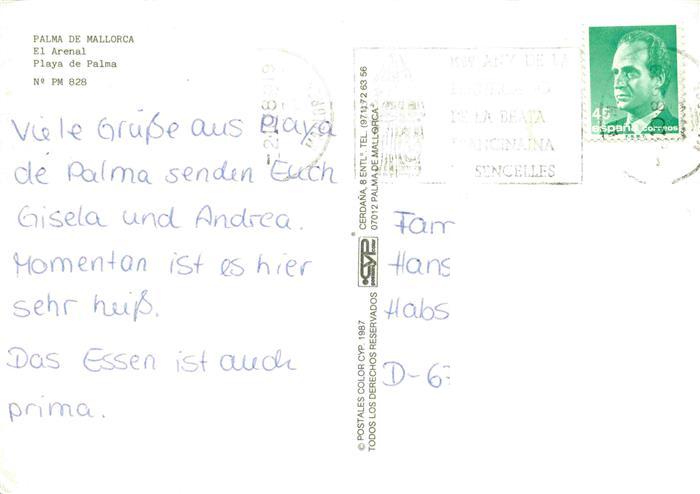 PALMA DE MALLORCA
El Arenal
Playa de Palma
Nº PM 828
Viele Grüße aus Playa
de Palma senden Euch
Gisela und Andrea.
Momentan ist es hier
sehr heiß.
Das Essen ist auch
prima.
© POSTALES COLOR CYP. 1987
TODOS LOS DERECHOS RESERVADOS
CYP
CERDAÑA, 8 ENTLº TEL. (971) 72 63 56
07012 PALMA DE MALLORCA
ANY DE LA
DE LA BEATA
FRANCINAINA
SENCELLES
45
españa CORREOS
Fam
Hans
Habs
D-67